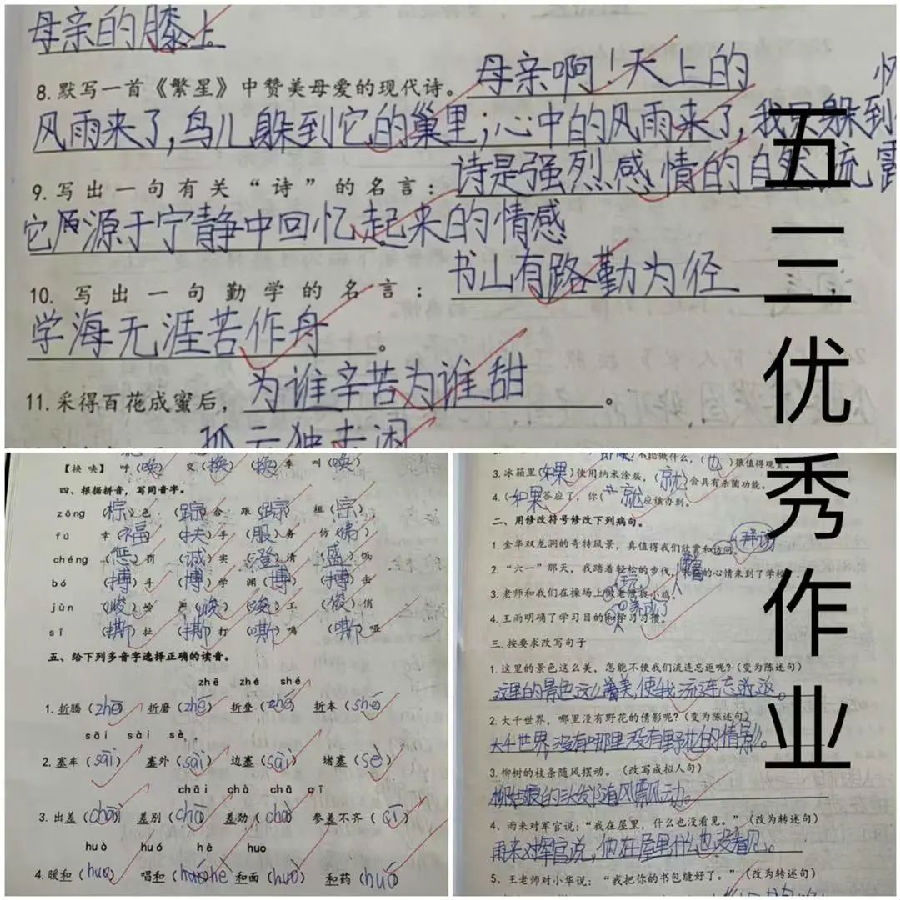 母亲的膝上
8.默写一首《繁星》中赞美母爱的现代诗。母亲啊!天上的
风雨来了,鸟儿躲到它的巢里;心中的风雨来了,我只躲到
9.写出一句有关“诗”的名言:诗是强烈感情的自然流露
它原源于宁静中回忆起来的情感
10.写出一句勤学的名言:书山有路勤为径
学海无涯苦作舟。
11.采得百花成蜜后,为谁辛苦为谁甜。
五三优秀作业
四、根据拼音,写同音字。
zōng (棕)色 (综)合 (踪) 祖(宗)
fú 幸(福) (扶)手 (服)务 仿(佛)
chéng (惩)罚 (诚)实 (澄)清 (盛)
bó (搏)手 (博)学 (博) (搏)击
jùn (峻) (竣)工 (俊)俏
sī (撕)打 (嘶)鸣 (嘶)哑
五、给下列多音字选择正确的读音。
zhē zhé shé
1.折腾( ) 折磨( ) 折叠( ) 折本( )
sāi sài sè
2.塞车(sāi) 塞外(sài) 边塞(sài) 堵塞(sè)
chāi chà chā cī
3.出差(chāi) 差别(chā) 差劲(chà) 参差不齐(cī)
huò huó hè huo
4.暖和(huo) 唱和(hè) 和面(huó) 和药(huò)
3.冰箱里(如果)使用纳米涂层,(就)会具有杀菌功能。
4.(如果)答应了,你(就)应该办到。
二、用修改符号修改下列病句。
1.金华双龙洞的奇特风景,真值得我们欣赏和访问。
2.“六一”那天,我踏着轻松的步伐,的心情来到了学校
3.老师和我们在操场上做老鹰捉小鸡
4.王雨明确了学习目的和学习习惯。
三、按要求改写句子
1.这里的景色这么美,怎能不使我们流连忘返呢?(变为陈述句)
2.大千世界,哪里没有野花的倩影呢?(变为陈述句)
3.柳树的枝条随风摆动。(改写成拟人句)
4.雨来对军官说:“我在屋里,什么也没看见。”(改为转述句)
雨来对军官说,他在屋里什么也没看见。
5.王老师对小华说:“我把你的书包缝好了。”(改为转述句)